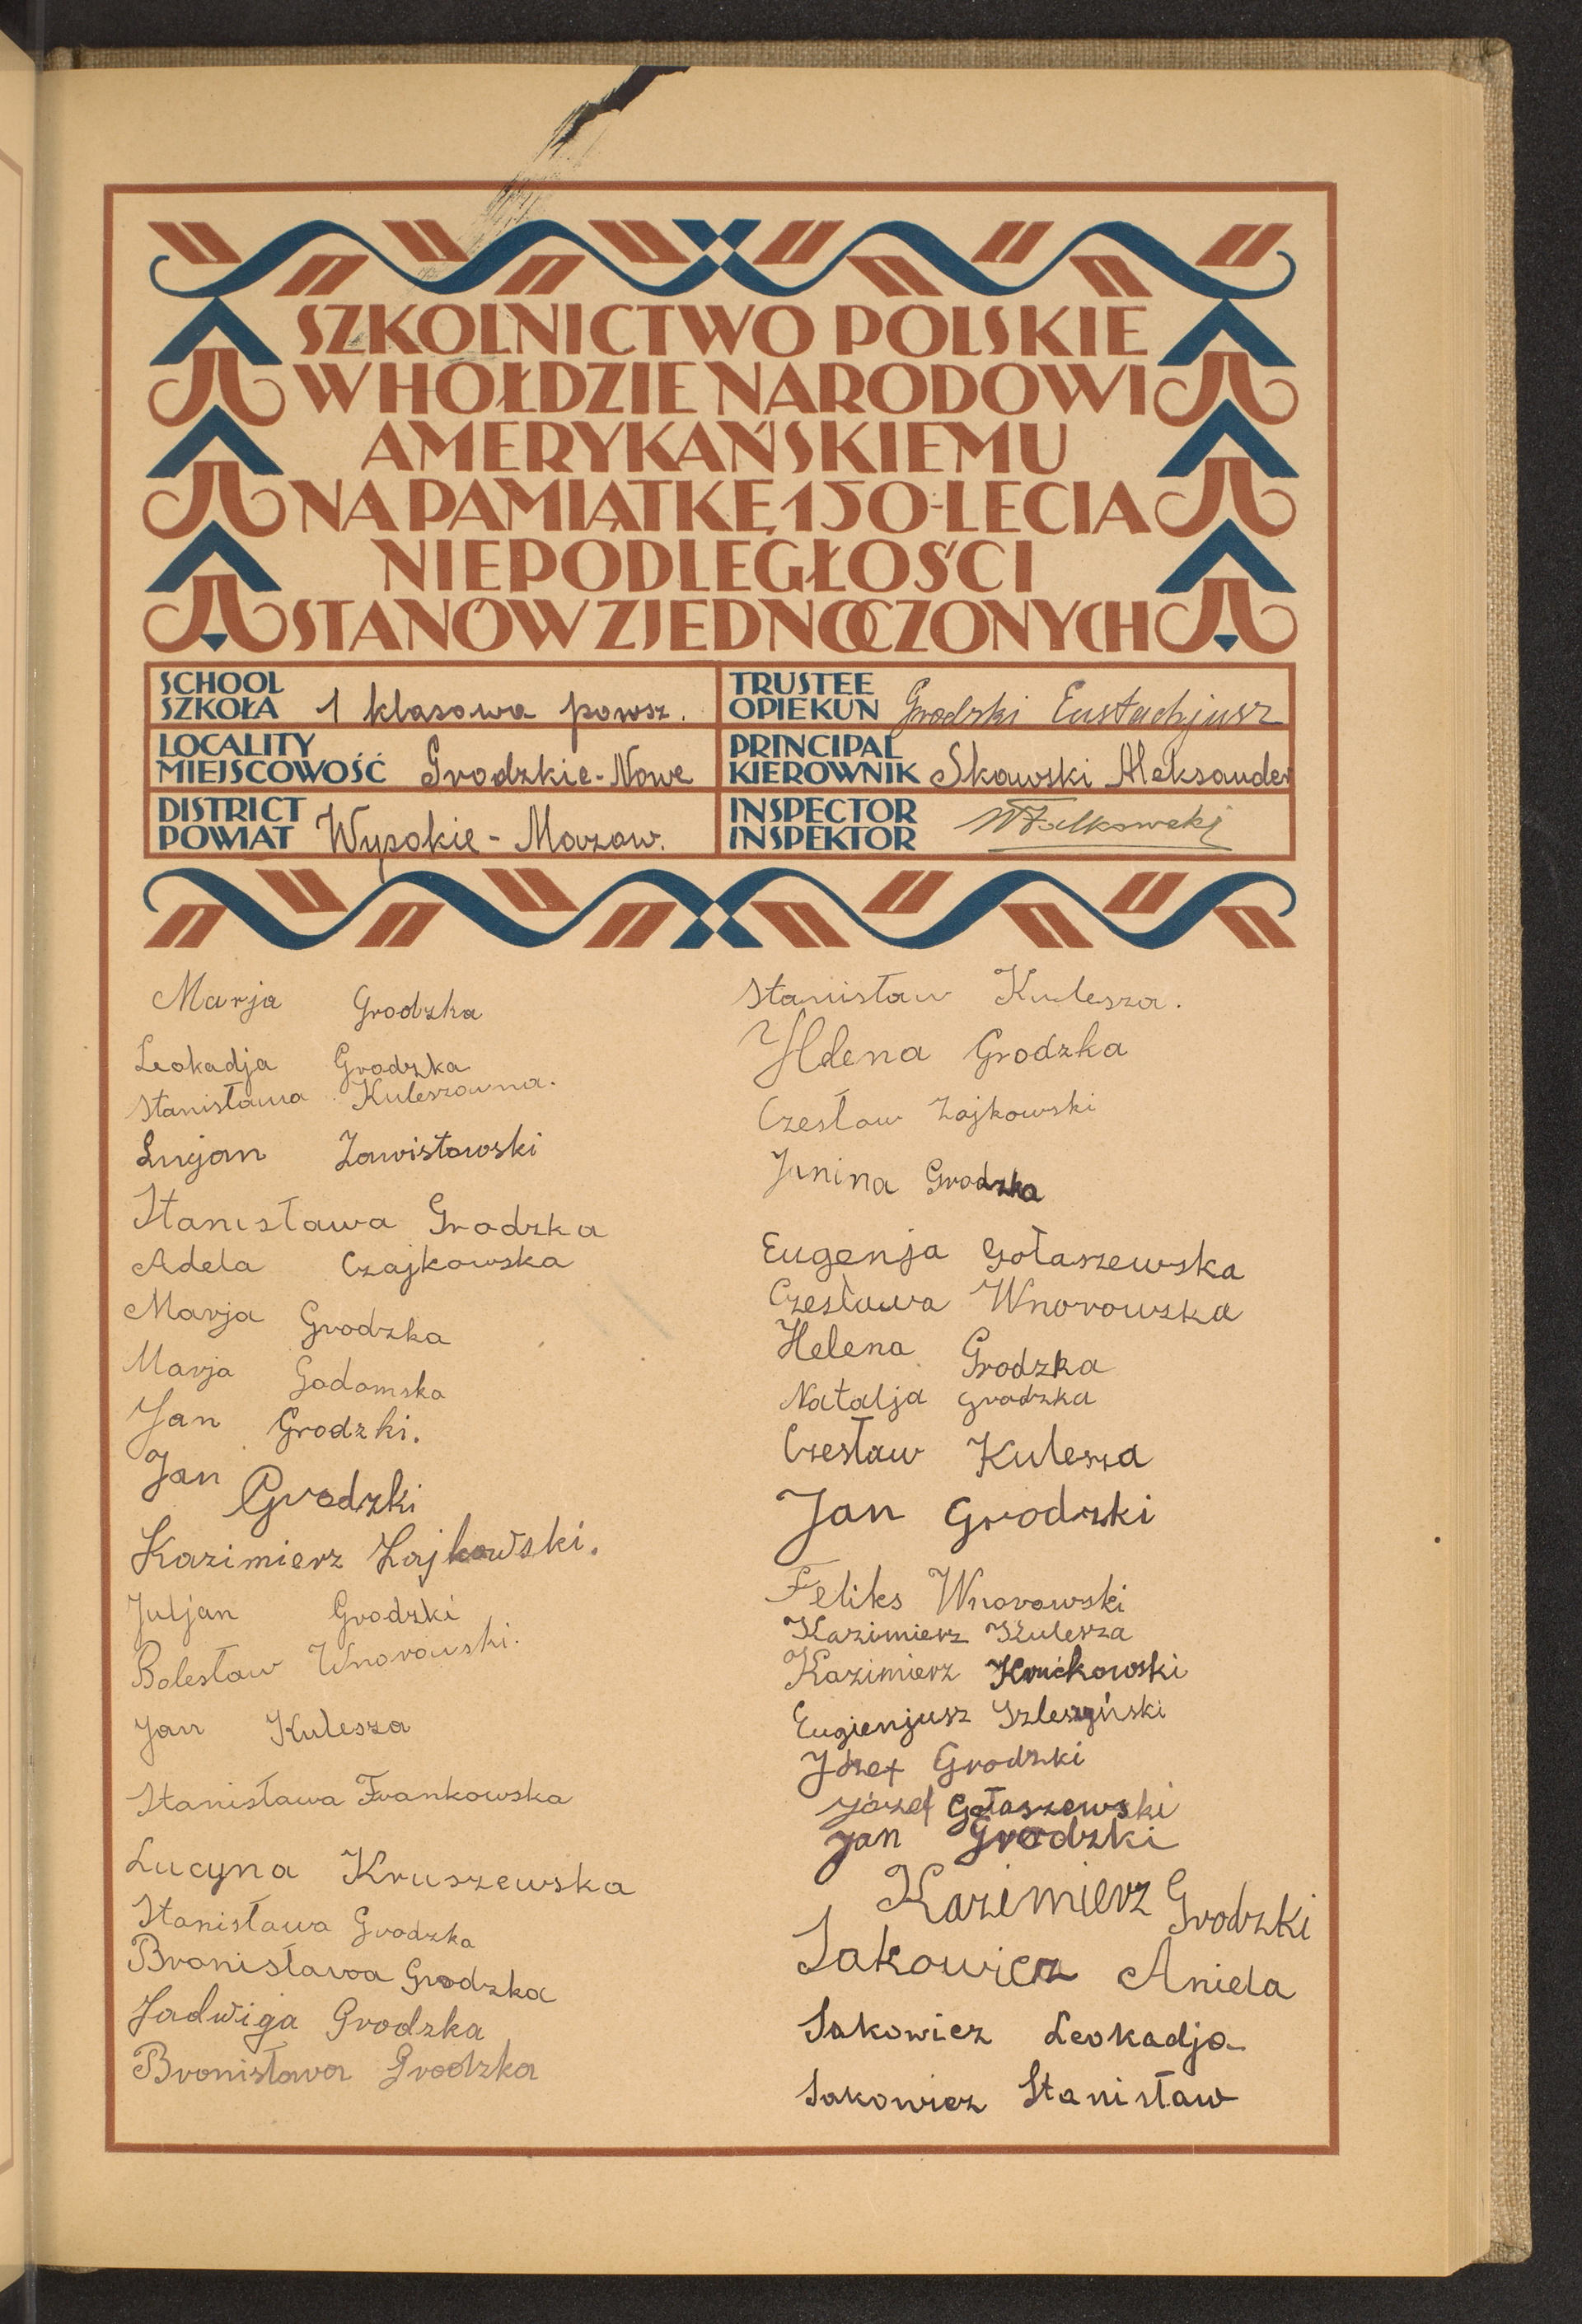 SZKOLNICTWO POLSKIE
W HOŁDZIE NARODOWI
AMERYKAŃSKIEMU
NA PAMIĄTKĘ 150-LECIA
NIEPODLEGŁOŚCI
STANÓW ZJEDNOCZONYCH
SCHOOL
SZKOŁA 1 klasowa powsz.
TRUSTEE
OPIEKUN Grodzki Eustachjusz
LOCALITY
MIEJSCOWOŚĆ Grodzkie-Nowe
PRINCIPAL
KIEROWNIK Skawski Aleksander
DISTRICT
POWIAT Wysokie-Mazow.
INSPECTOR
INSPEKTOR WFalkowski
Marja Grodzka
Leokadja Grodzka
Stanisława Kuleszowna.
Lucjan Zawistowski
Stanisława Grodzka
Adela Czajkowska
Marja Grodzka
Marja Gadomska
Jan Grodzki.
Jan Grodzki
Kazimierz Zajkowski.
Juljan Grodzki
Bolesław Wnorowski.
Jan Kulesza
Stanisława Frankowska
Lucyna Kruszewska
Stanisława Grodzka
Bronisława Grodzka
Jadwiga Grodzka
Bronisława Grodzka
Stanisław Kulesza.
Helena Grodzka
Czesław Zajkowski
Janina Grodzka
Eugenja Gołaszewska
Czesława Wnorowska
Helena Grodzka
Natalja Grodzka
Czesław Kulesza
Jan Grodzki
Feliks Wnorowski
Kazimierz Kulesza
Kazimierz Krućkowski
Eugienjusz Szleszyński
Józef Grodzki
Józef Gołaszewski
Jan Grodzki
Kazimierz Grodzki
Sakowicz Aniela
Sakowicz Leokadja
Sakowicz Stanisław